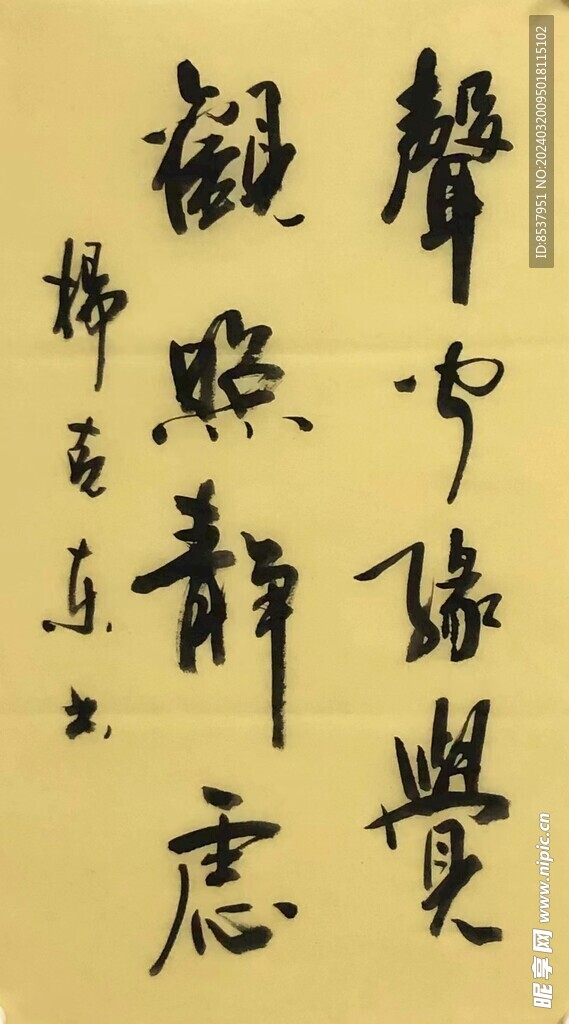 聲聞緣覺
觀照靜慮
楊克东书
ID:8537951 NO:20240320095018115102
昵享网 www.nipic.cn